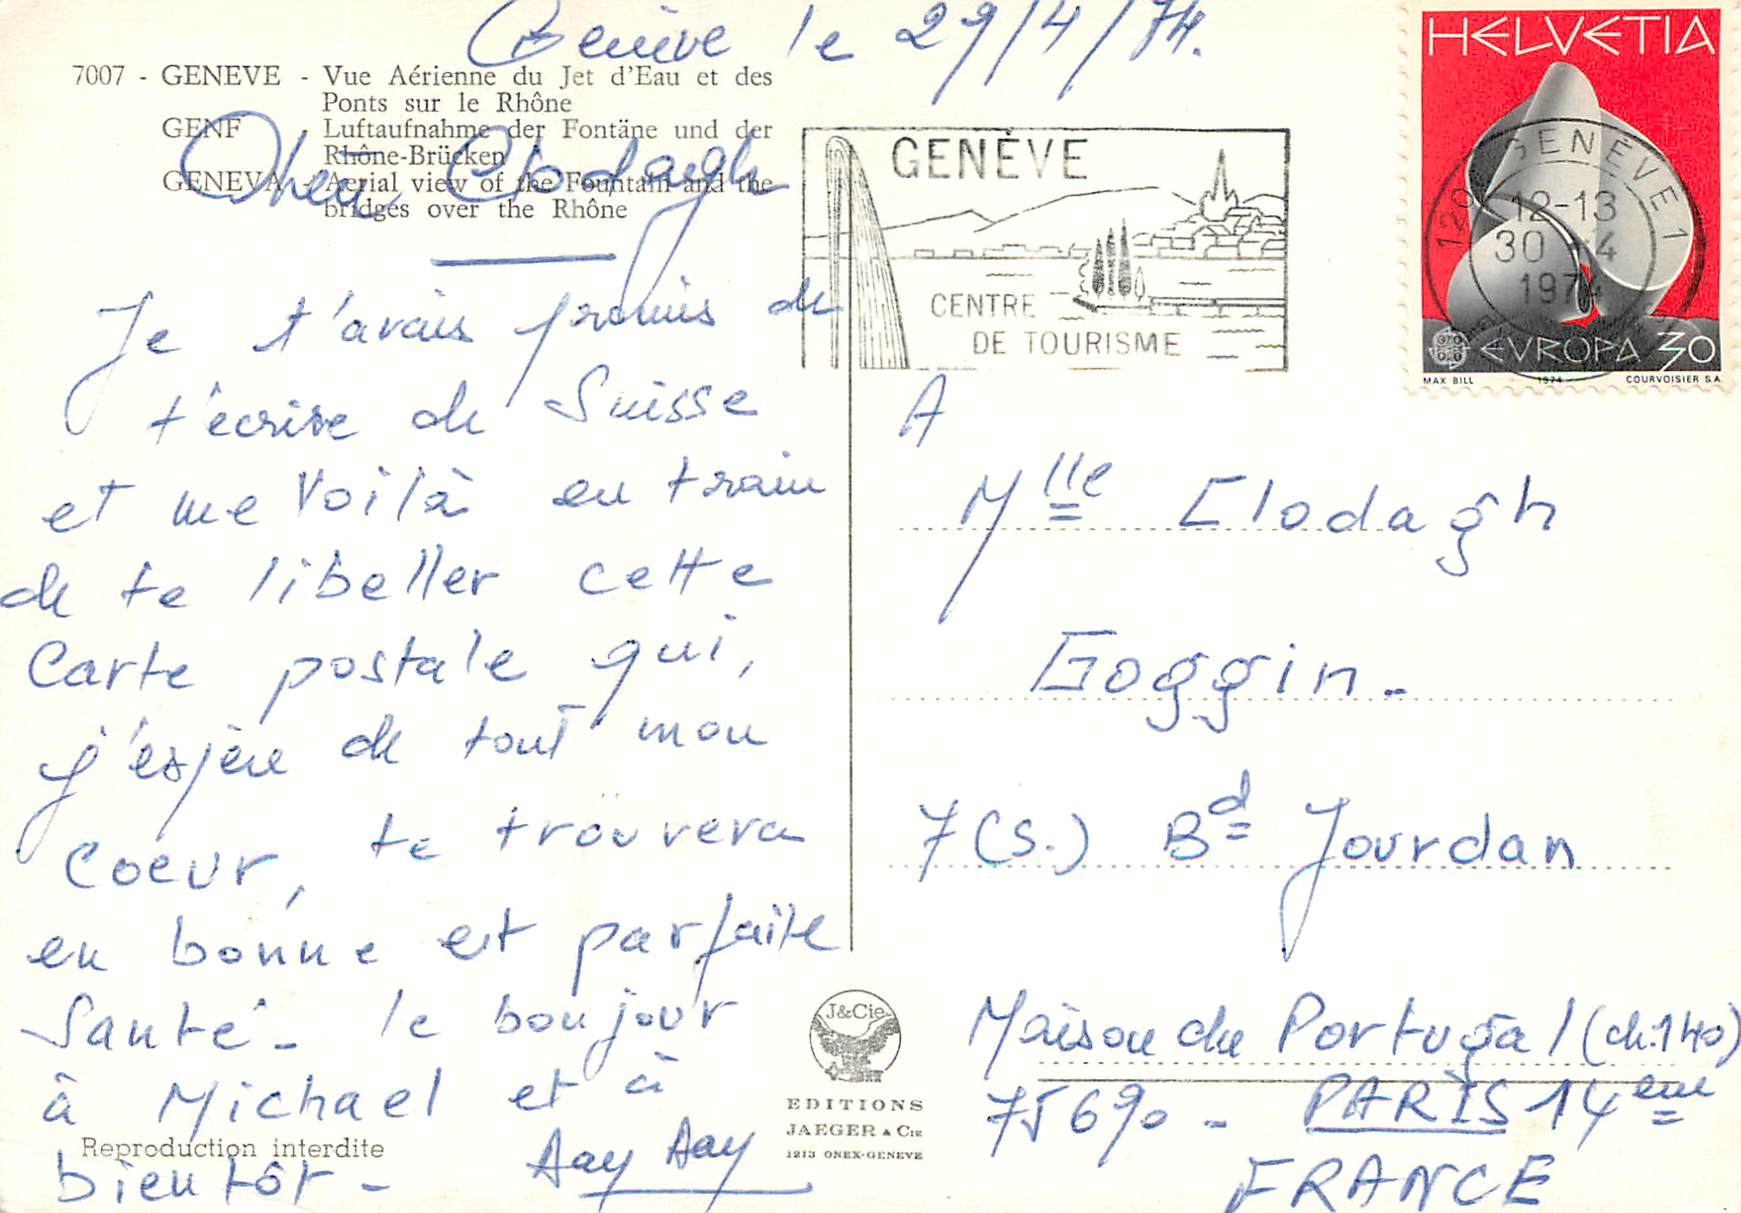 Genève le 29/4/74.
7007 - GENEVE - Vue Aérienne du Jet d'Eau et des
Ponts sur le Rhône
GENF - Luftaufnahme der Fontäne und der
Rhône-Brücken
GENEVA - Aerial view of the Fountain and the
bridges over the Rhône
Clodagh
Je t'avais promis de
t'écrire de Suisse
et me voilà en train
de te libeller cette
Carte postale qui,
j'espère de tout mon
coeur, te trouvera
en bonne et parfaite
Santé - le bonjour
à Michael et à
bientôt -
Reproduction interdite
GENÈVE
CENTRE
DE TOURISME
HELVETIA
EUROPA 30
MAX BILL 1974 COURVOISIER S.A.
GENÈVE 1
12-13
30 -4
1974
A
Mlle Clodagh
Goggin -
7 (S.) Bd Jourdan
Maison du Portugal (ch. 140)
75690 - PARIS 14eme
FRANCE
J&Cie
EDITIONS
JAEGER & Cie
1213 ONEX-GENEVE